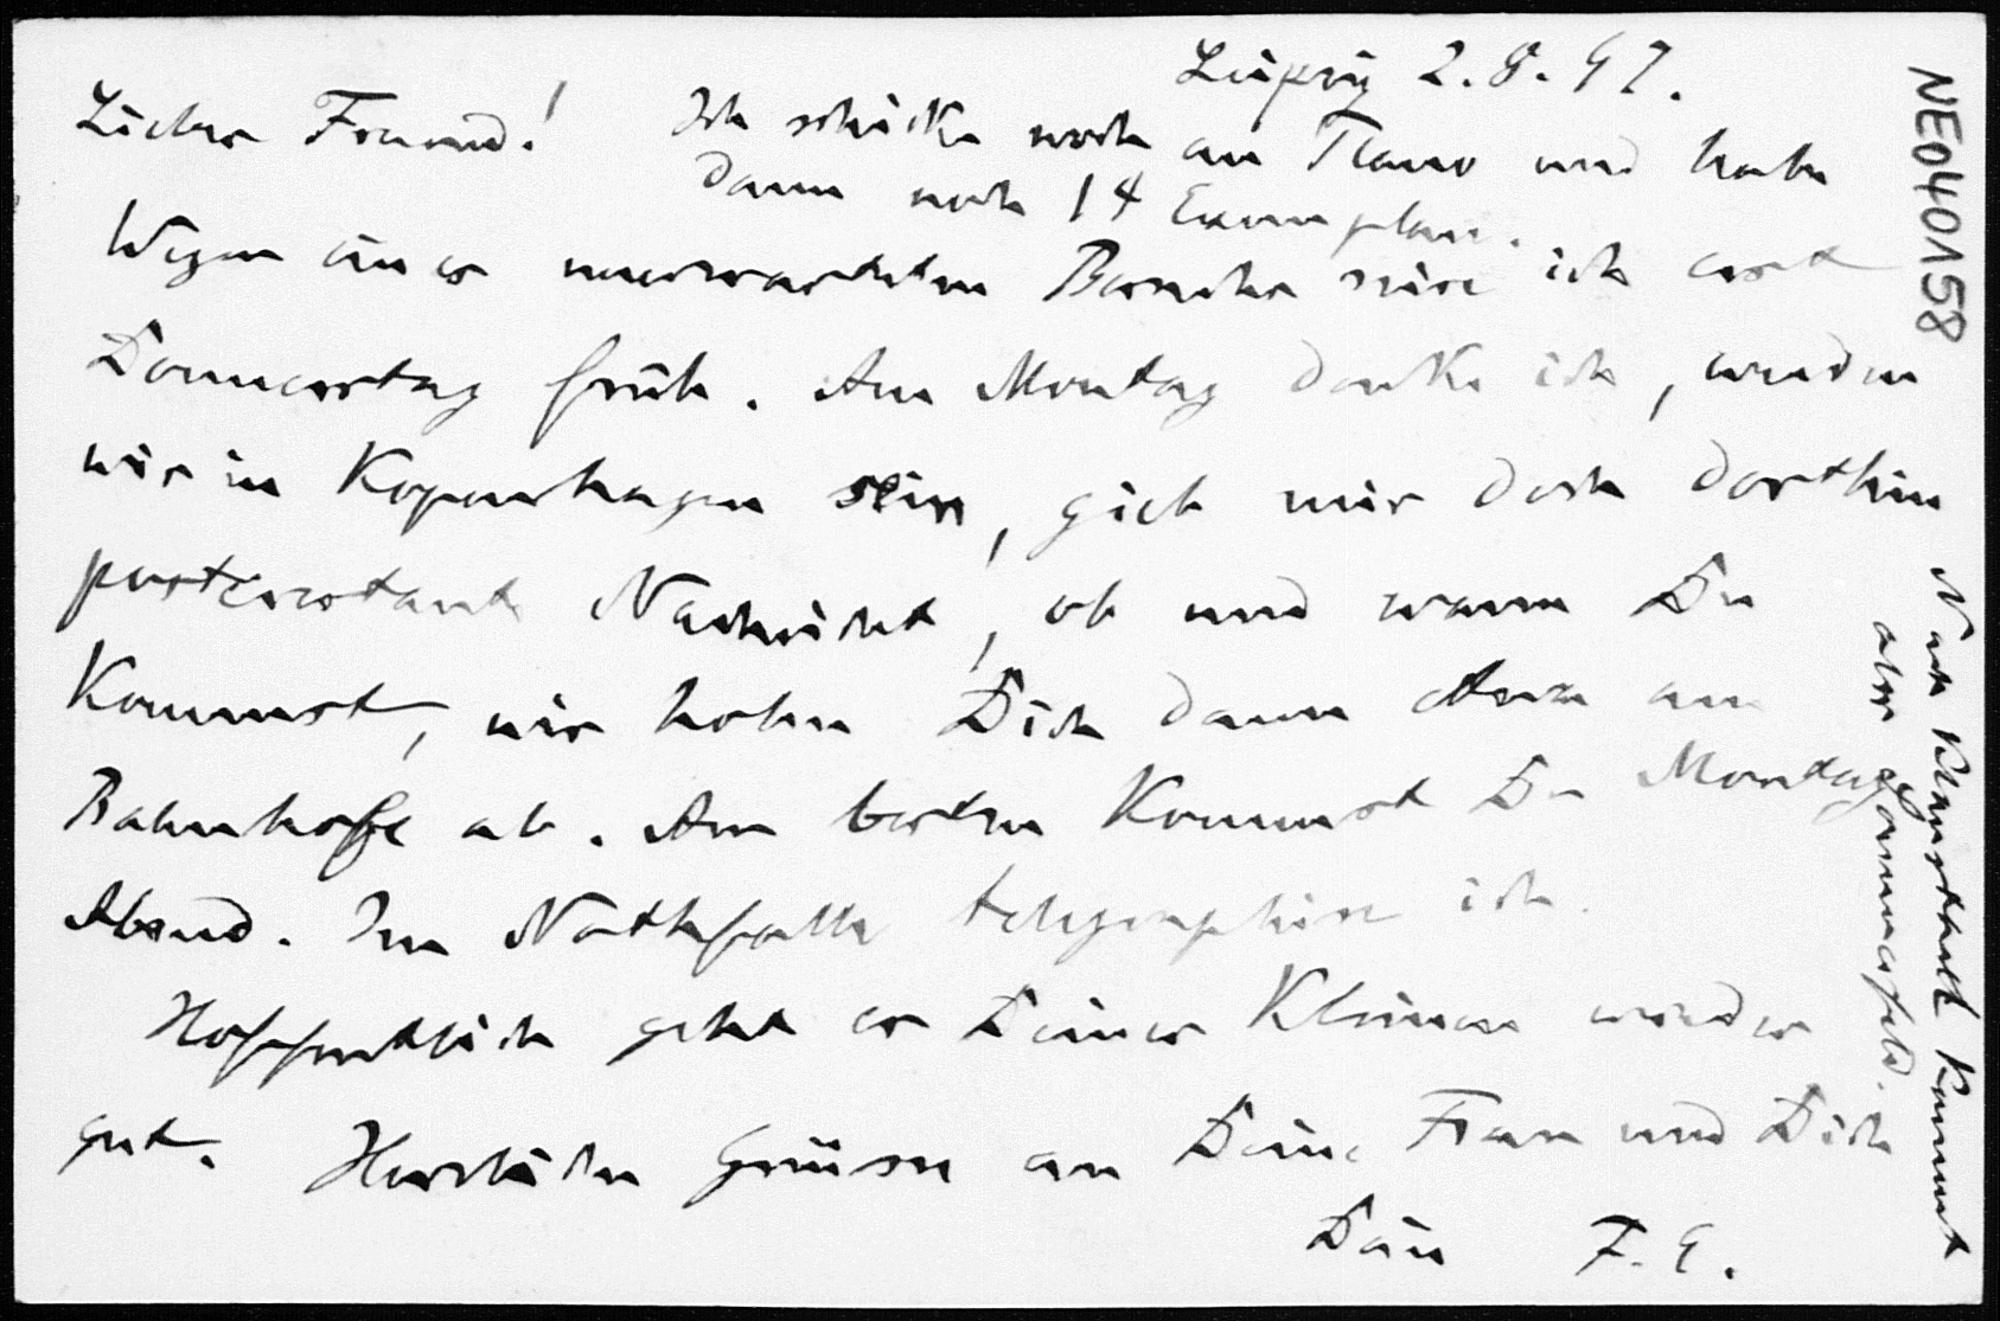 Leipzig 2.8.97.
Lieber Freund! Ich schicke noch an Teano und habe
dann noch 14 Exemplare.
Wegen eines unerwarteten Besuches reise ich erst
Donnerstag früh. Am Montag denke ich, werden
wir in Kopenhagen sein, gieb mir doch dorthin
posterestante Nachricht, ob und wann Du
kommst, wir holen Dich dann am
Bahnhofe ab. Am besten kommst Du Montag
Abend. Im Nothfalle telegraphire ich.
Hoffentlich geht es Deiner Kleinen wieder
gut. Herzliche Grüsse an Deine Frau und Dich
Dein F. E.
Nach kommt
aber
NE040158